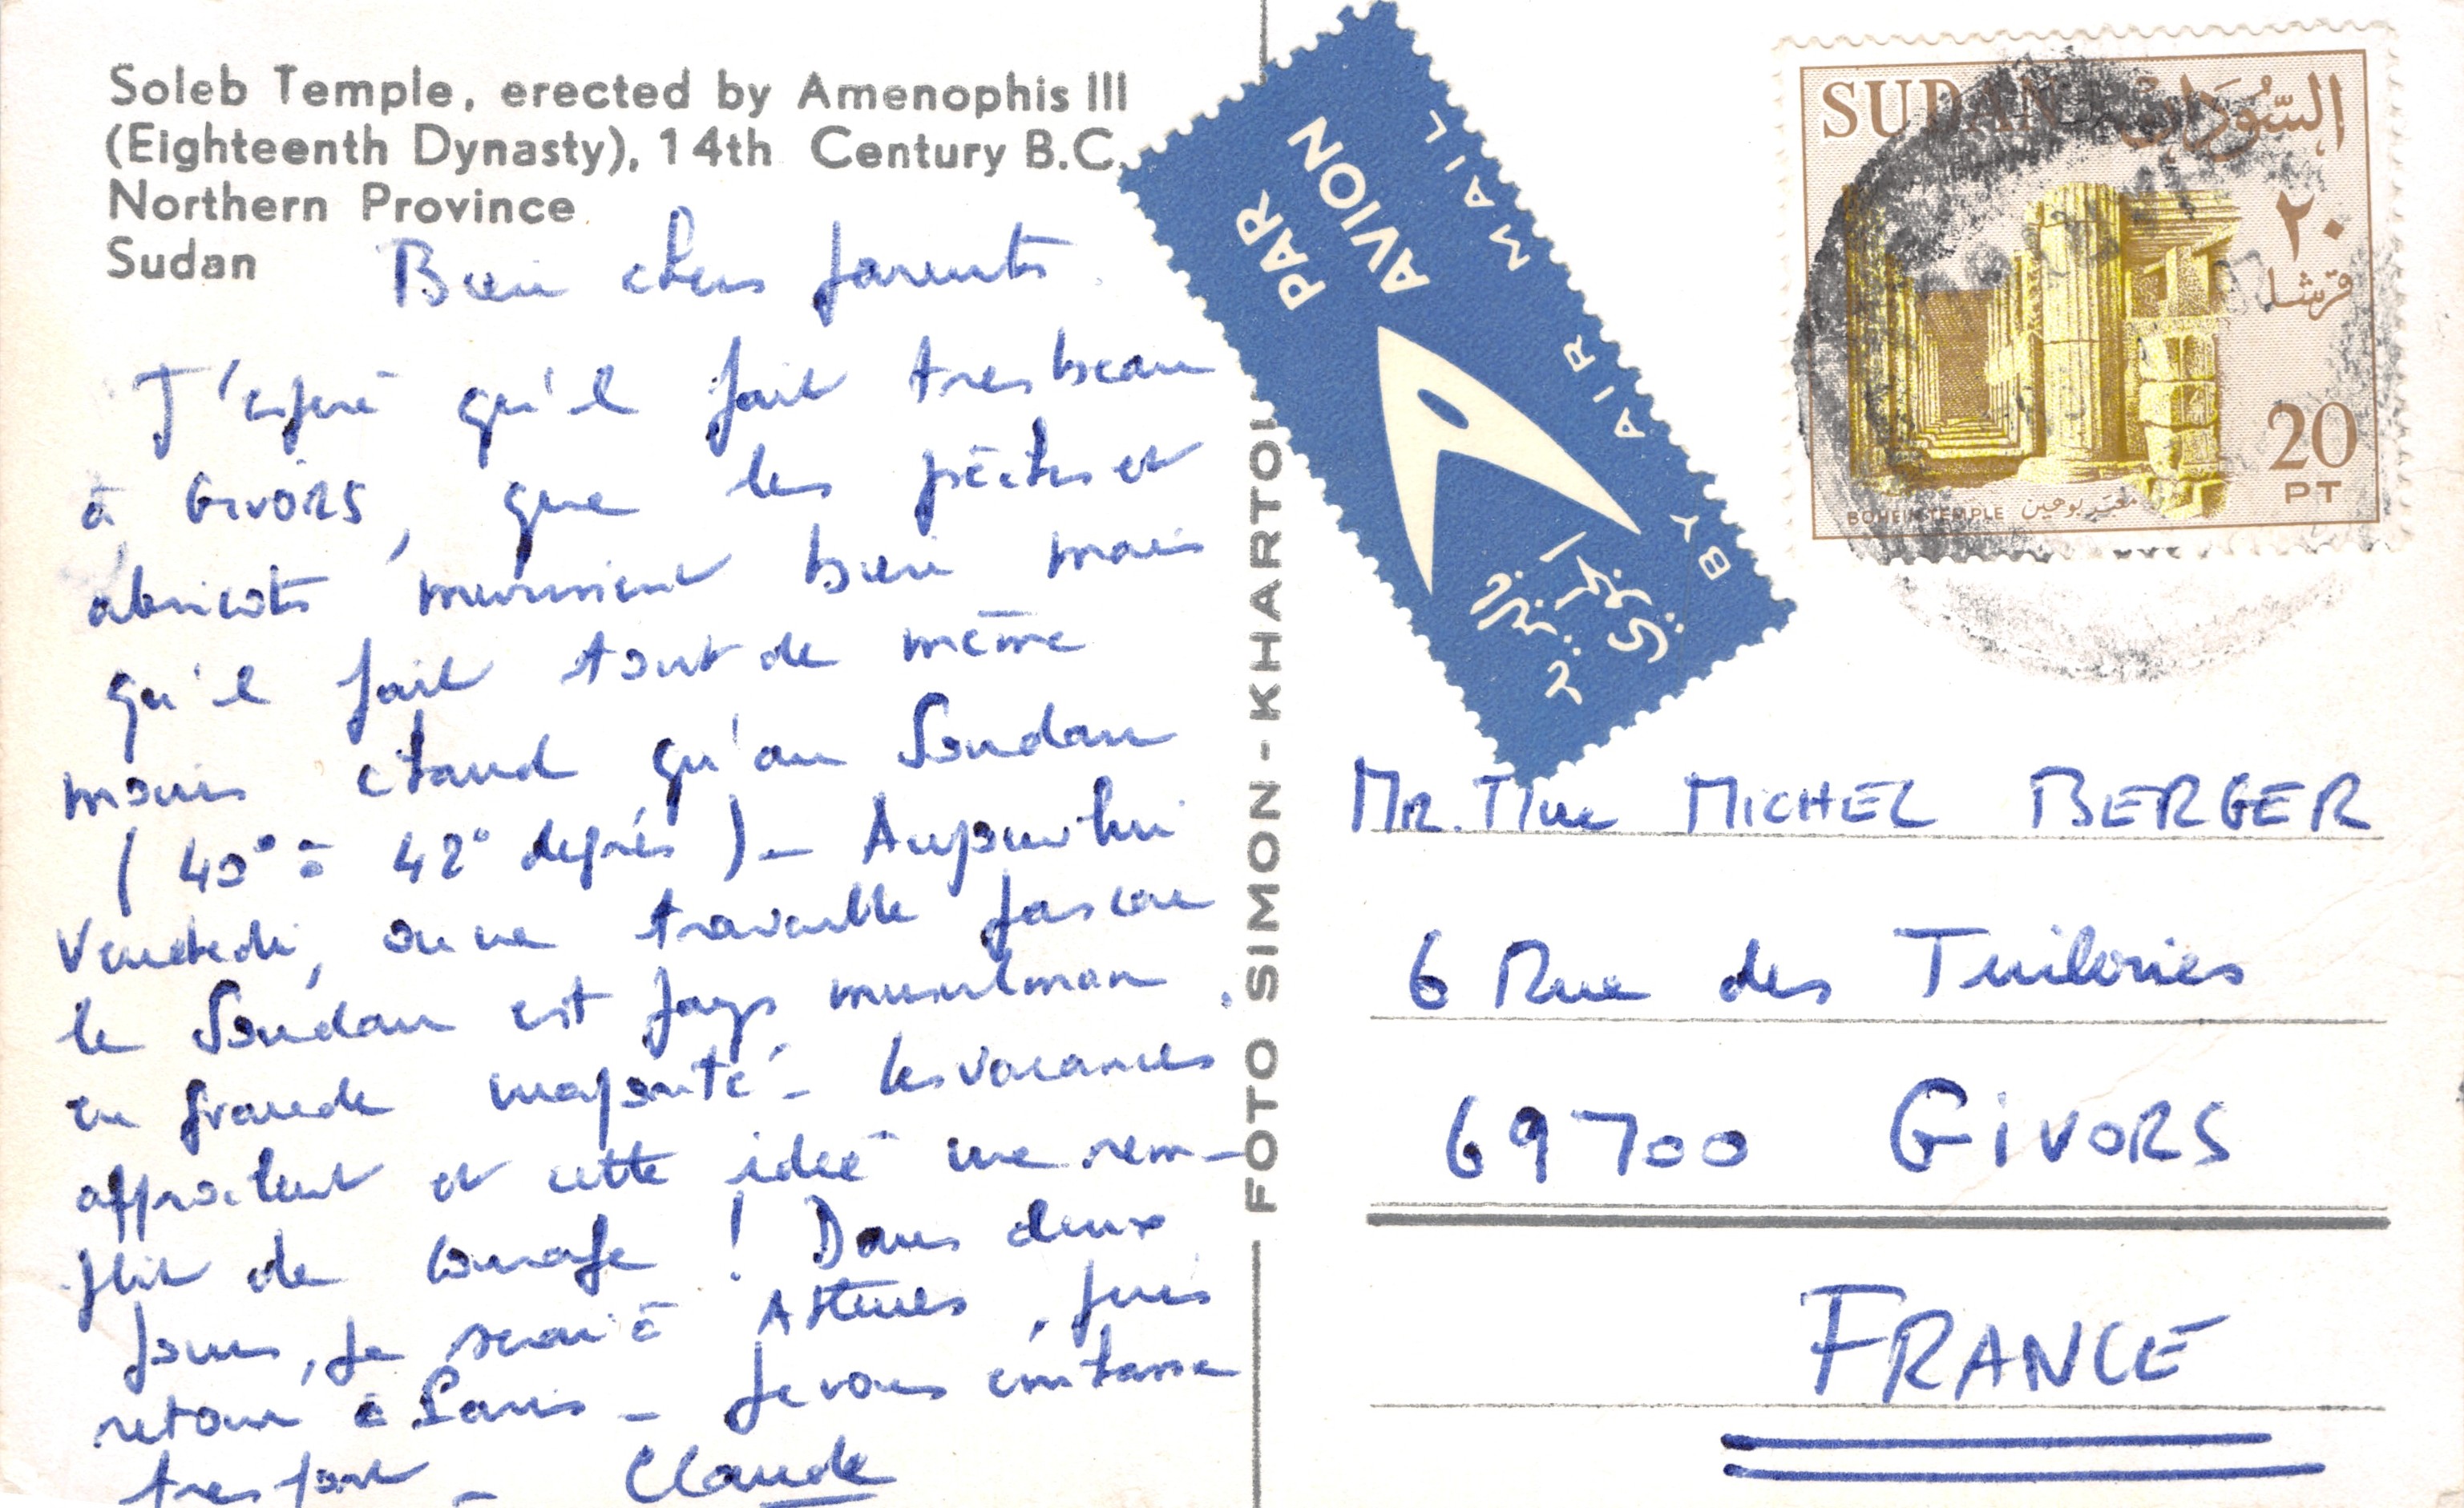 Soleb Temple, erected by Amenophis III
(Eighteenth Dynasty), 14th Century B.C.
Northern Province
Sudan
Bien chers parents
J'espère qu'il fait tres beau
à GIVORS, que les pêches et
abricots murissent bien mais
qu'il fait tout de même
moins chaud qu'au Soudan
(40° à 42° degrés) - Aujourd'hui
Vendredi, on ne travaille pas car
le Soudan est pays musulman
en grande majorité - les vacances
approchent et cette idée me rem-
plit de courage ! Dans deux
jours, je serai à Athènes, puis
retour à Paris - Je vous embrasse
tres fort - Claude
FOTO SIMON - KHARTOU
PAR
AVION
BY AIR MAIL
بالبريد
الجوي
SUDAN السودان
٢٠
قرشا
20
PT
BOHEIN TEMPLE معبد بوهين
MR. Mme MICHEL BERGER
6 Rue des Tuileries
69700 GIVORS
FRANCE